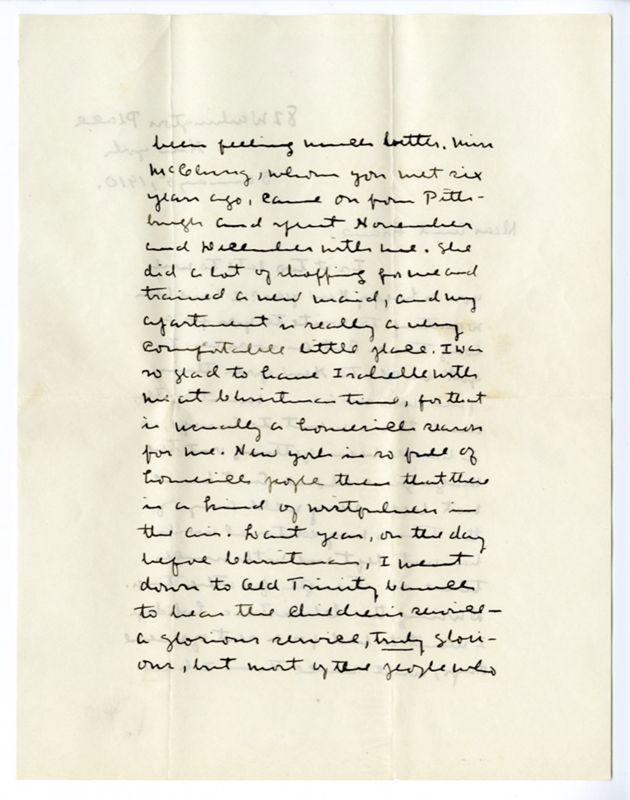 been feeling much better. Miss
McClung, whom you met six
years ago, came on from Pitts-
burgh and spent November
and December with me. She
did a lot of shopping for me and
trained a new maid, and my
apartment is really a very
comfortable little place. I was
so glad to have Isabelle with
me at Christmas time, for that
is usually a homesick season
for me. New York is so full of
homesick people then that there
is a kind of wistfulness in
the air. Last year, on the day
before Christmas, I went
down to Old Trinity Church
to hear the children's service—
a glorious service, truly glori-
ous, but most of the people who
82 Washington Place
New York
1910.